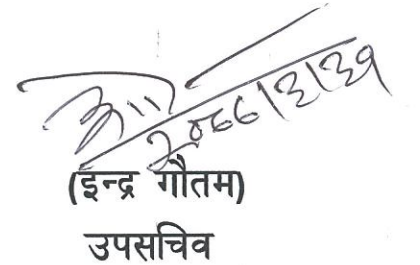 २०६६।३।३१
(इन्द्र गौतम)
उपसचिव